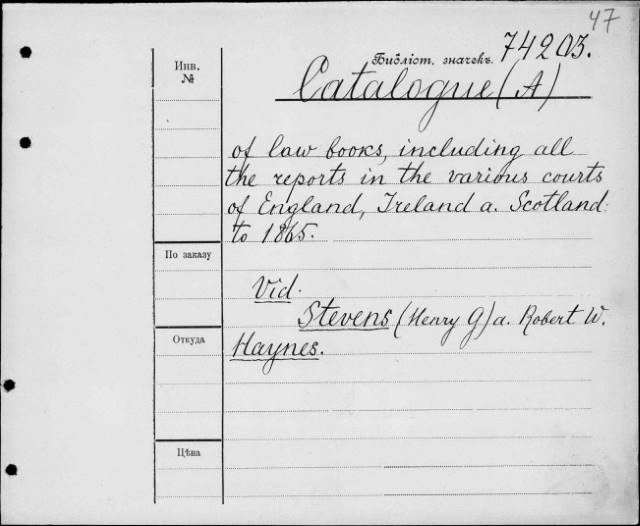 47
Библіот. значекъ. 74203.
Инв.
№
Catalogue (A)
of law books, including all
the reports in the various courts
of England, Ireland a. Scotland
to 1865.
По заказу
Vid.
Stevens (Henry G) a. Robert W.
Откуда
Haynes.
Цѣна